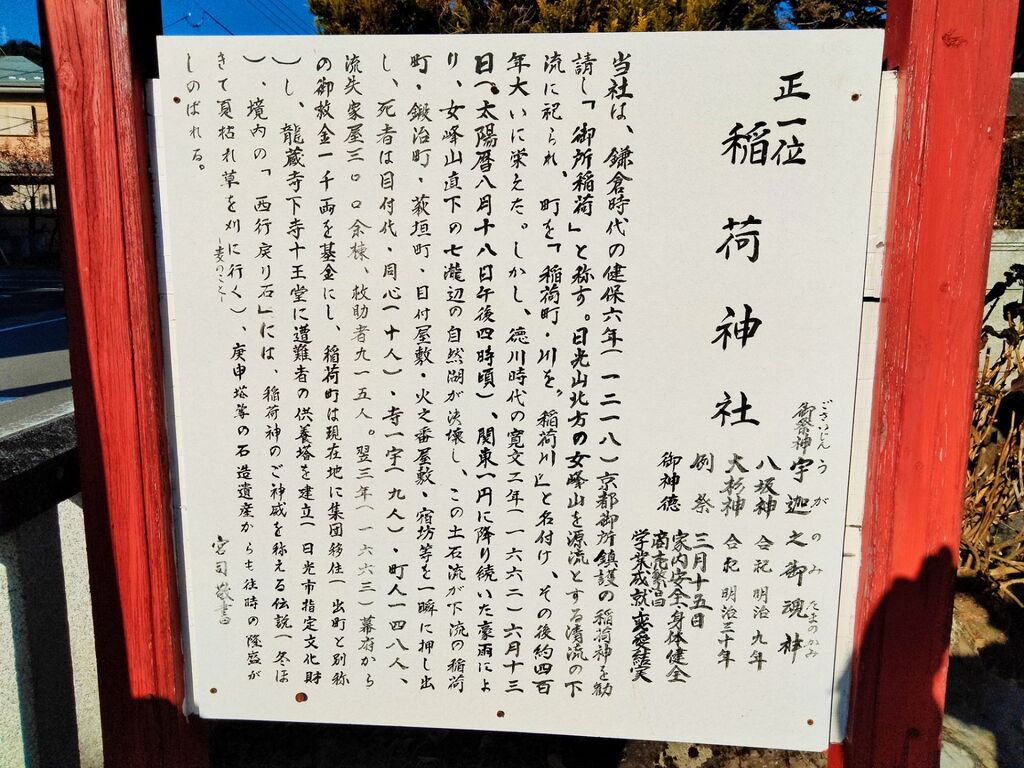 正一位
稲荷神社
御祭神 宇迦之御魂神
ごさいじん うがのみたまのかみ
八坂神 合祀 明治九年
大杉神 合祀 明治三十年
例祭 三月十五日
御神徳 家内安全・身体健全
商売繁昌
学業成就・恋愛結実
当社は、鎌倉時代の健保六年(一二一八)京都御所鎮護の稲荷神を勧
請し「御所稲荷」と称す。日光山北方の女峰山を源流とする清流の下
流に祀られ、町を「稲荷町・川を〝稲荷川〟と名付け、その後約四百
年大いに栄えた。しかし、徳川時代の寛文二年(一六六二)六月十三
日へ太陽暦八月十八日午後四時頃)、関東一円に降り続いた豪雨によ
り、女峰山直下の七滝辺の自然湖が決壊し、この土石流が下流の稲荷
町・鍛冶町・萩垣町・目付屋敷・火之番屋敷・宿坊等を一瞬に押し出
し、死者は目付代・同心(十人)・寺一宇(九人)・町人一四八人、
流失家屋三〇〇余棟、救助者九一五人。翌三年(一六六三)幕府から
の御救金一千両を基金にし、稲荷町は現在地に集団移住(出町と別称
)し、龍蔵寺下寺十王堂に遭難者の供養塔を建立(日光市指定文化財
)、境内の「西行戻り石」には、稲荷神のご神威を称える伝説(冬ほ
きて夏枯れ草を刈に行く)、庚申塔等の石造遺産からも往時の隆盛が
―麦のこと―
しのばれる。
宮司 敬書